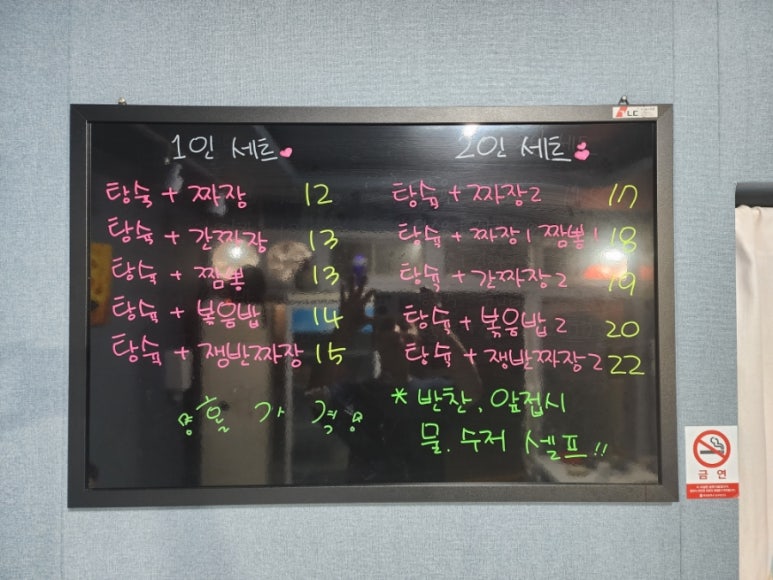 1인 세트
탕슉 + 짜장 12
탕슉 + 간짜장 13
탕슉 + 짬뽕 13
탕슉 + 볶음밥 14
탕슉 + 쟁반짜장 15
홀 가격
2인 세트
탕슉 + 짜장2 17
탕슉 + 짜장1 짬뽕1 18
탕슉 + 간짜장2 19
탕슉 + 볶음밥2 20
탕슉 + 쟁반짜장2 22
* 반찬, 앞접시
물. 수저 셀프!!
금연